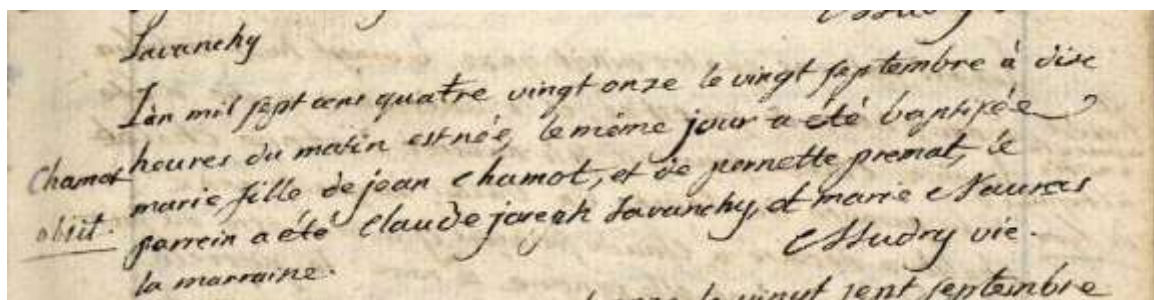 Lavanchy
L'an mil sept cens quatre vingt onze le vingt septembre à dix
heures du matin est née, le même jour a été baptisée
Chamot
marie fille de jean Chamot, et de pernette premat, le
obiit.
parrein a été Claude joseph Lavanchy, et marie
la marraine.
Mudry vic.
le vingt sept septembre